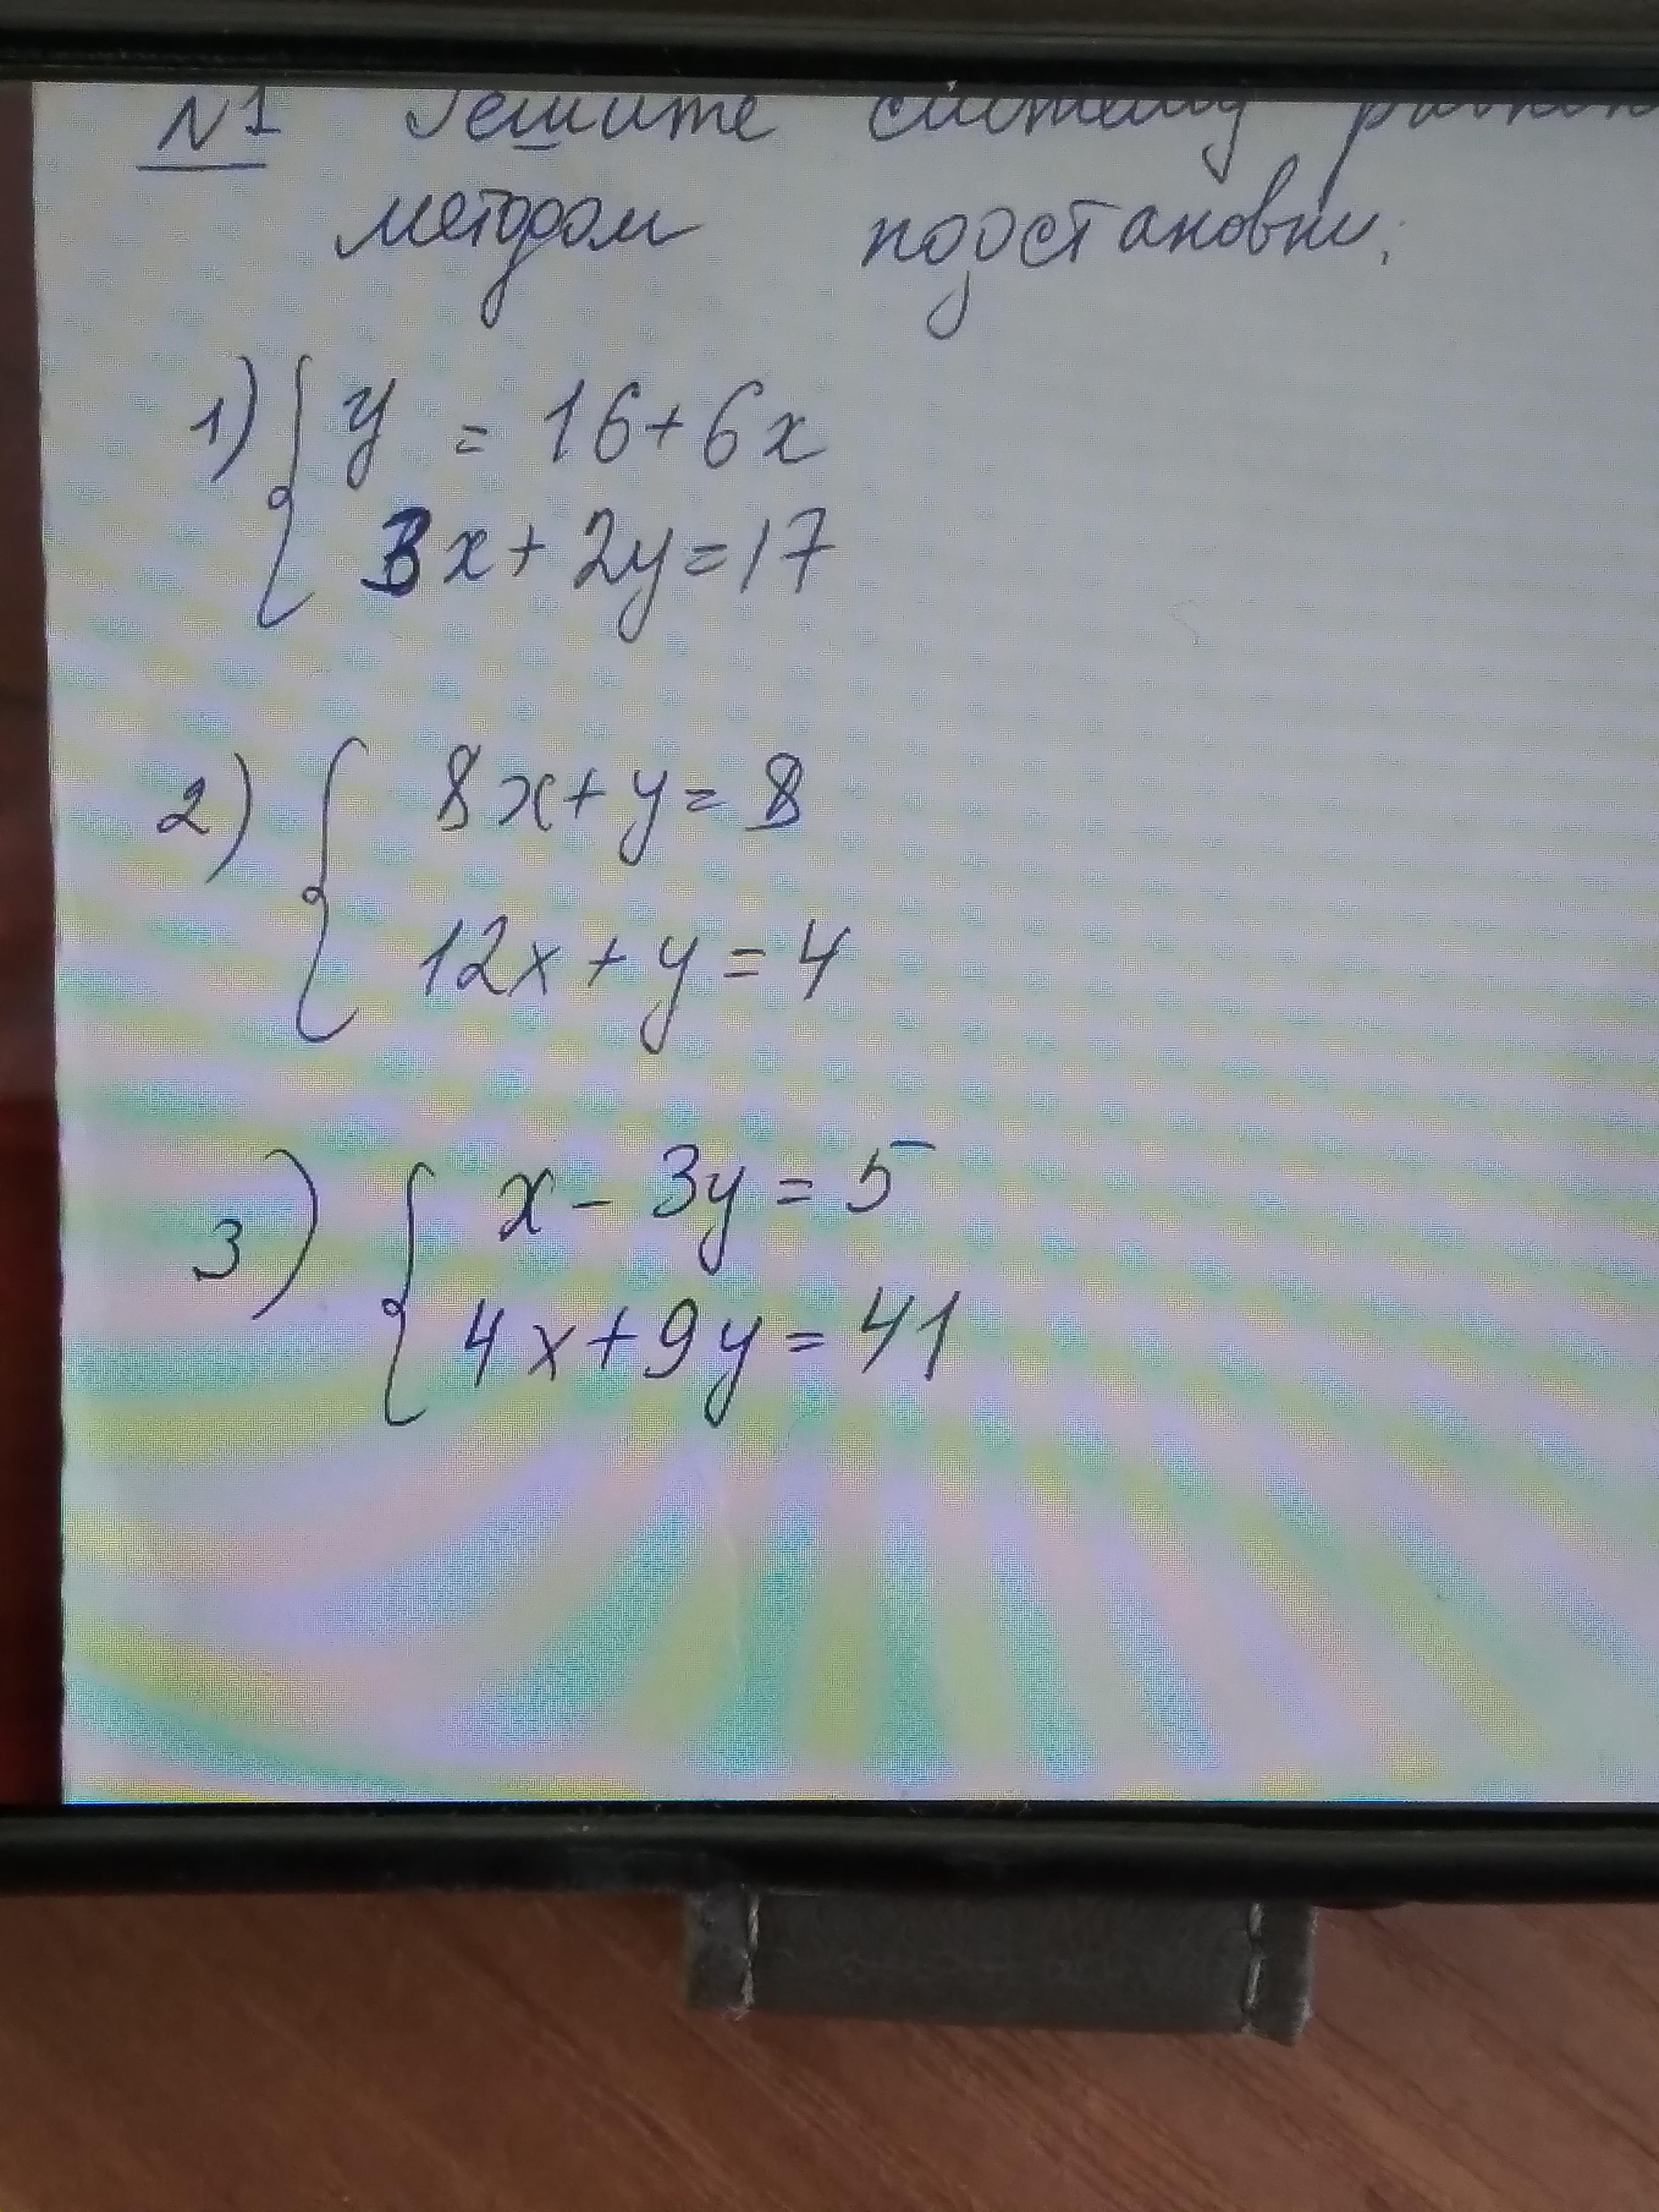 №1 Решите систему
методом подстановки.
1) { y = 16+6x
3x+2y=17
2) { 8x+y=8
12x+y=4
3) { x-3y=5
4x+9y=41